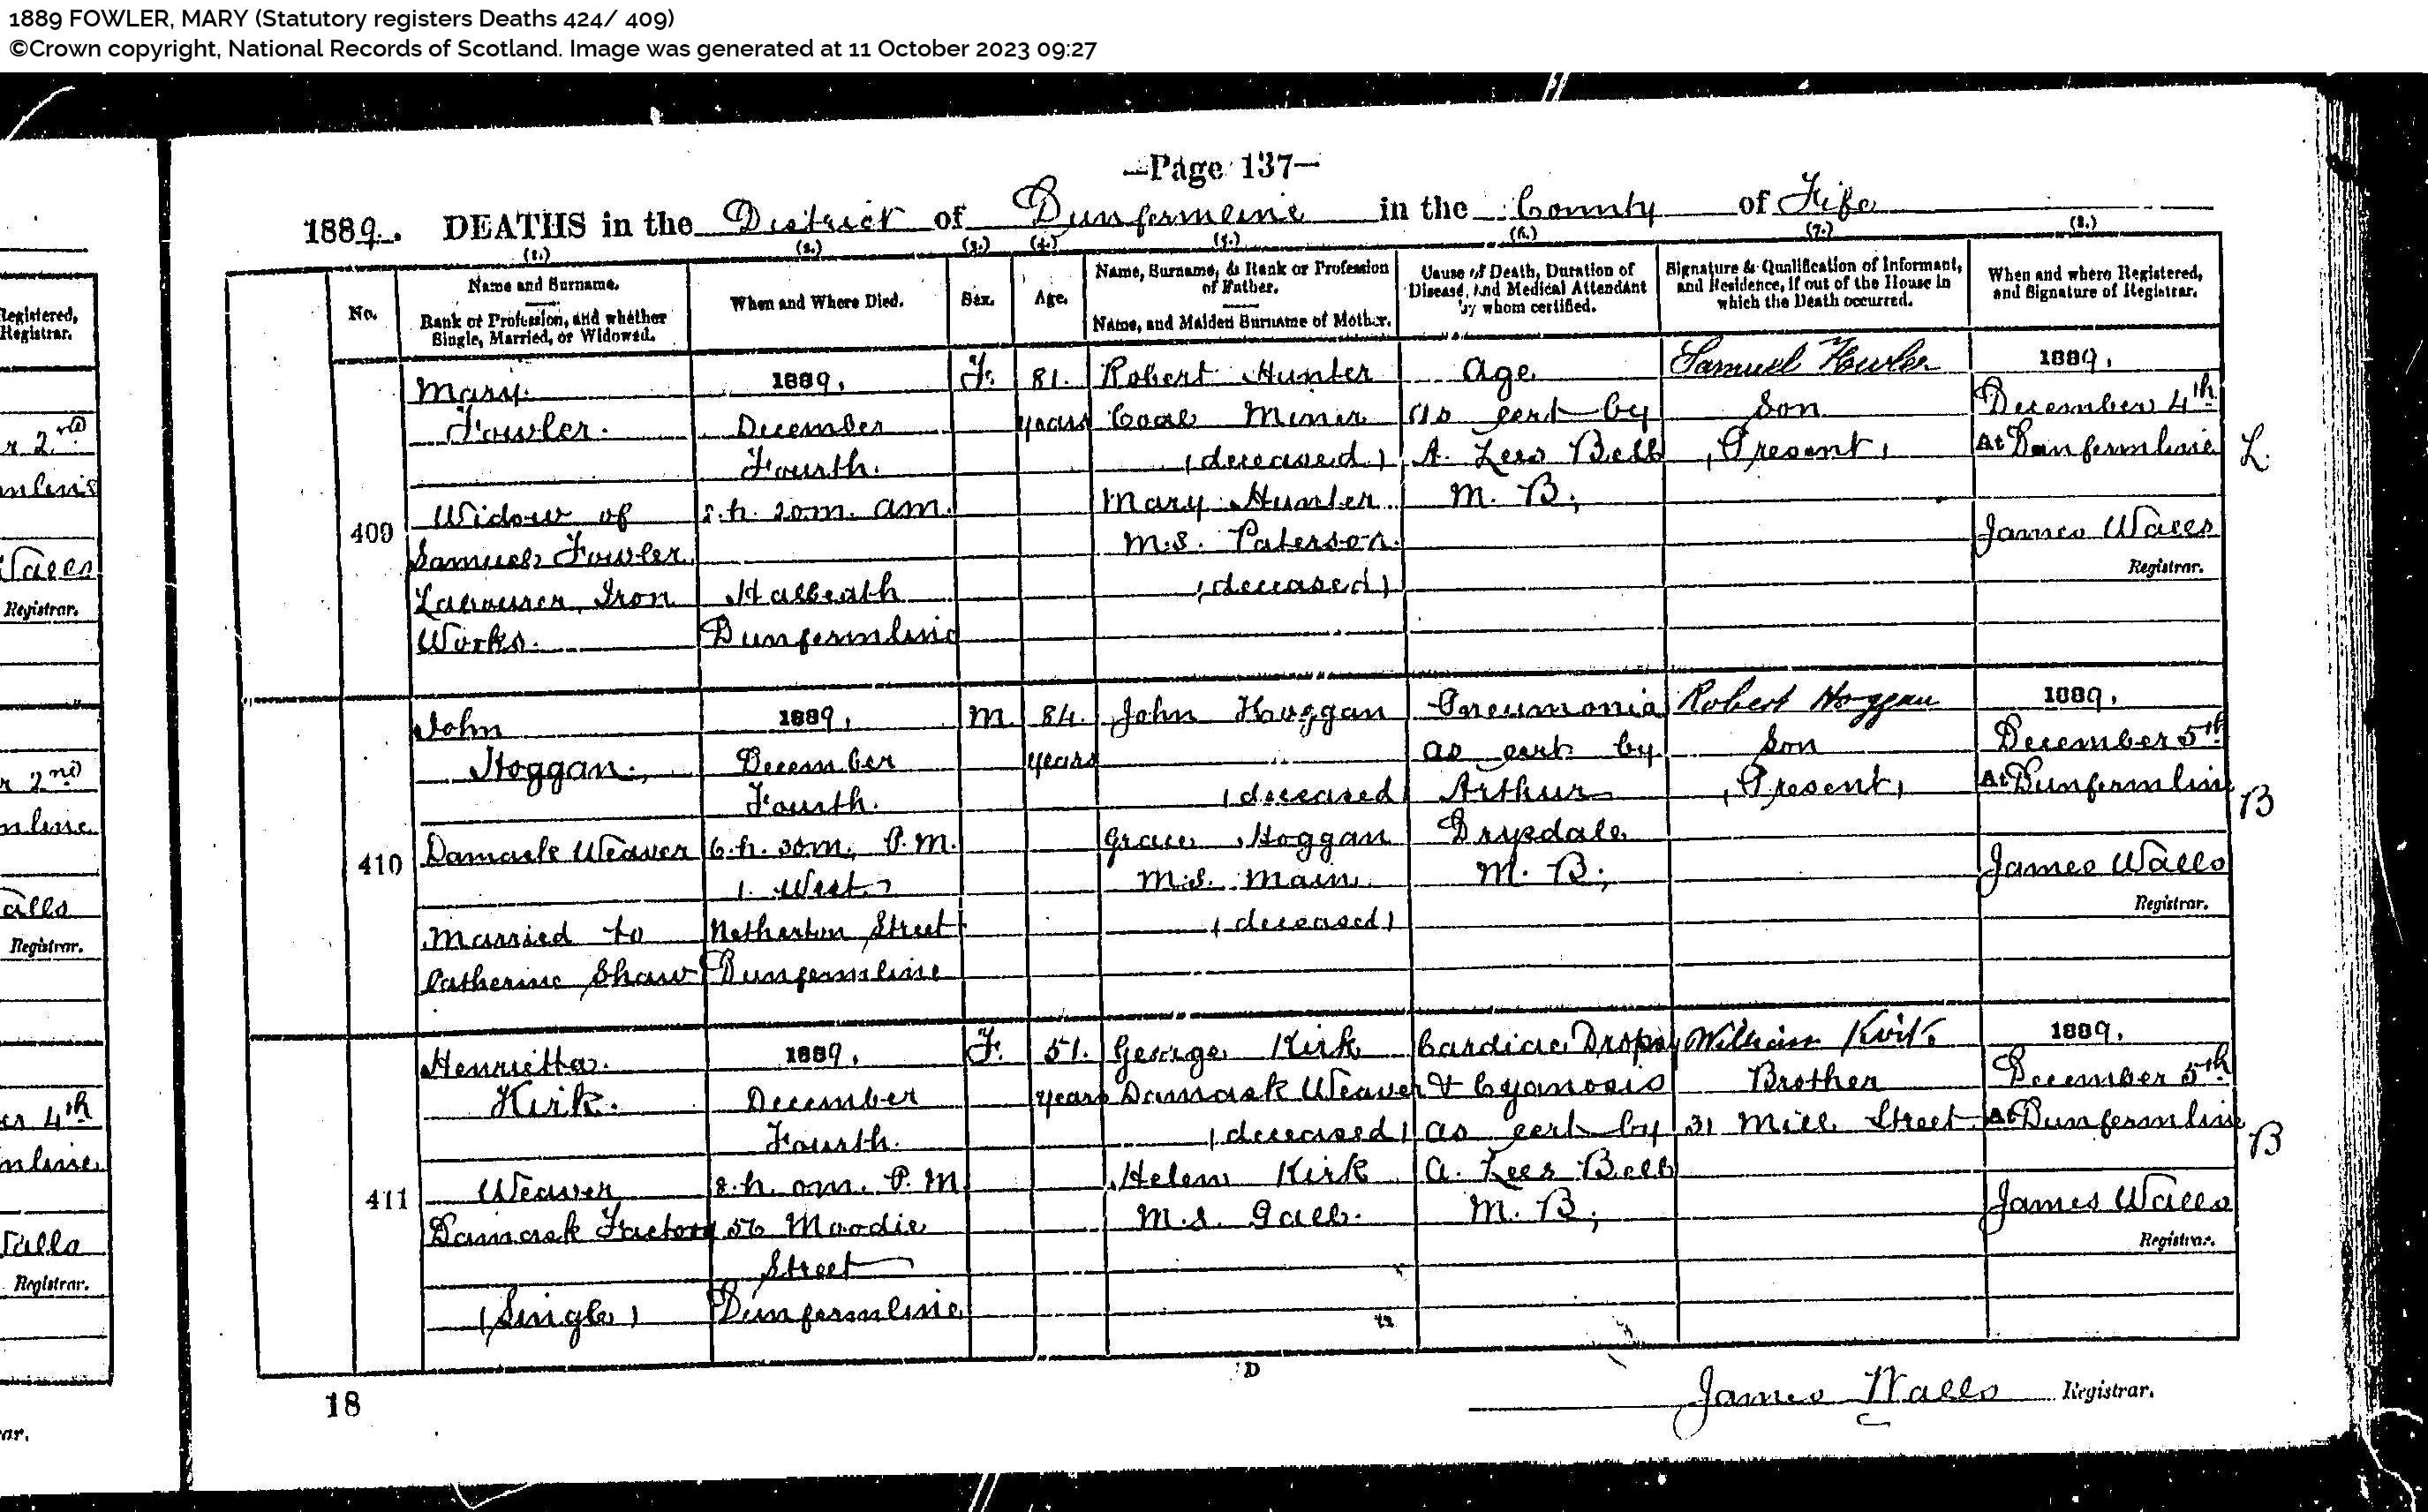 1889 FOWLER, MARY (Statutory registers Deaths 424/ 409)
©Crown copyright, National Records of Scotland. Image was generated at 11 October 2023 09:27
—Page 137—
1889. DEATHS in the District of Dunfermline in the County of Fife
(1.) (2.) (3.) (4.) (5.) (6.) (7.) (8.)
No.
Name and Surname.
Rank or Profession, and whether
Single, Married, or Widowed.
When and Where Died.
Sex.
Age.
Name, Surname, & Rank or Profession
of Father.
Name, and Maiden Surname of Mother.
Cause of Death, Duration of
Disease, and Medical Attendant
by whom certified.
Signature & Qualification of Informant,
and Residence, if out of the House in
which the Death occurred.
When and where Registered,
and Signature of Registrar.
409
Mary
Fowler.
Widow of
Samuel Fowler
Labourer, Iron
Works.
1889,
December
Fourth.
h. 20m. am.
Halbeath
Dunfermline
F.
81.
years
Robert Hunter
Coal Miner
(deceased)
Mary Hunter
m.s. Paterson.
(deceased)
Age
as cert by
A. Lees Bell
M. B,
Samuel Fowler
Son
(Present)
1889,
December 4th
At Dunfermline
James Walls
Registrar.
L.
410
John
Hoggan.
Damask Weaver
Married to
Catherine Shaw
1889,
December
Fourth.
6.h. 30m. P.M.
1. West
Netherton Street
Dunfermline
M.
84.
years
John Hoggan
(deceased)
Grace Hoggan
M.S. Main
(deceased)
Pneumonia
as cert by
Arthur
Drysdale
M. B,
Robert Hoggan
Son
(Present)
1889,
December 5th
At Dunfermline
James Walls
Registrar.
B
411
Henrietta
Kirk.
Weaver
Damask Factory
(Single)
1889,
December
Fourth.
8.h. 0m. P.M
56 Moodie
Street
Dunfermline
F.
51.
years
George Kirk
Damask Weaver
(deceased)
Helen Kirk
M.S. Gall.
Cardiac Dropsy
& Cyanosis
as cert by
A. Lees Bell
M. B,
William Kirk
Brother
31 Mill Street
1889,
December 5th
At Dunfermline
James Walls
Registrar.
B
18
D
James Walls Registrar.
Registered,
Registrar.
r 2nd
mline
Walls
Registrar.
r 2nd
mline
alls
Registrar.
er 4th
mline
Walls
Registrar.
rar.